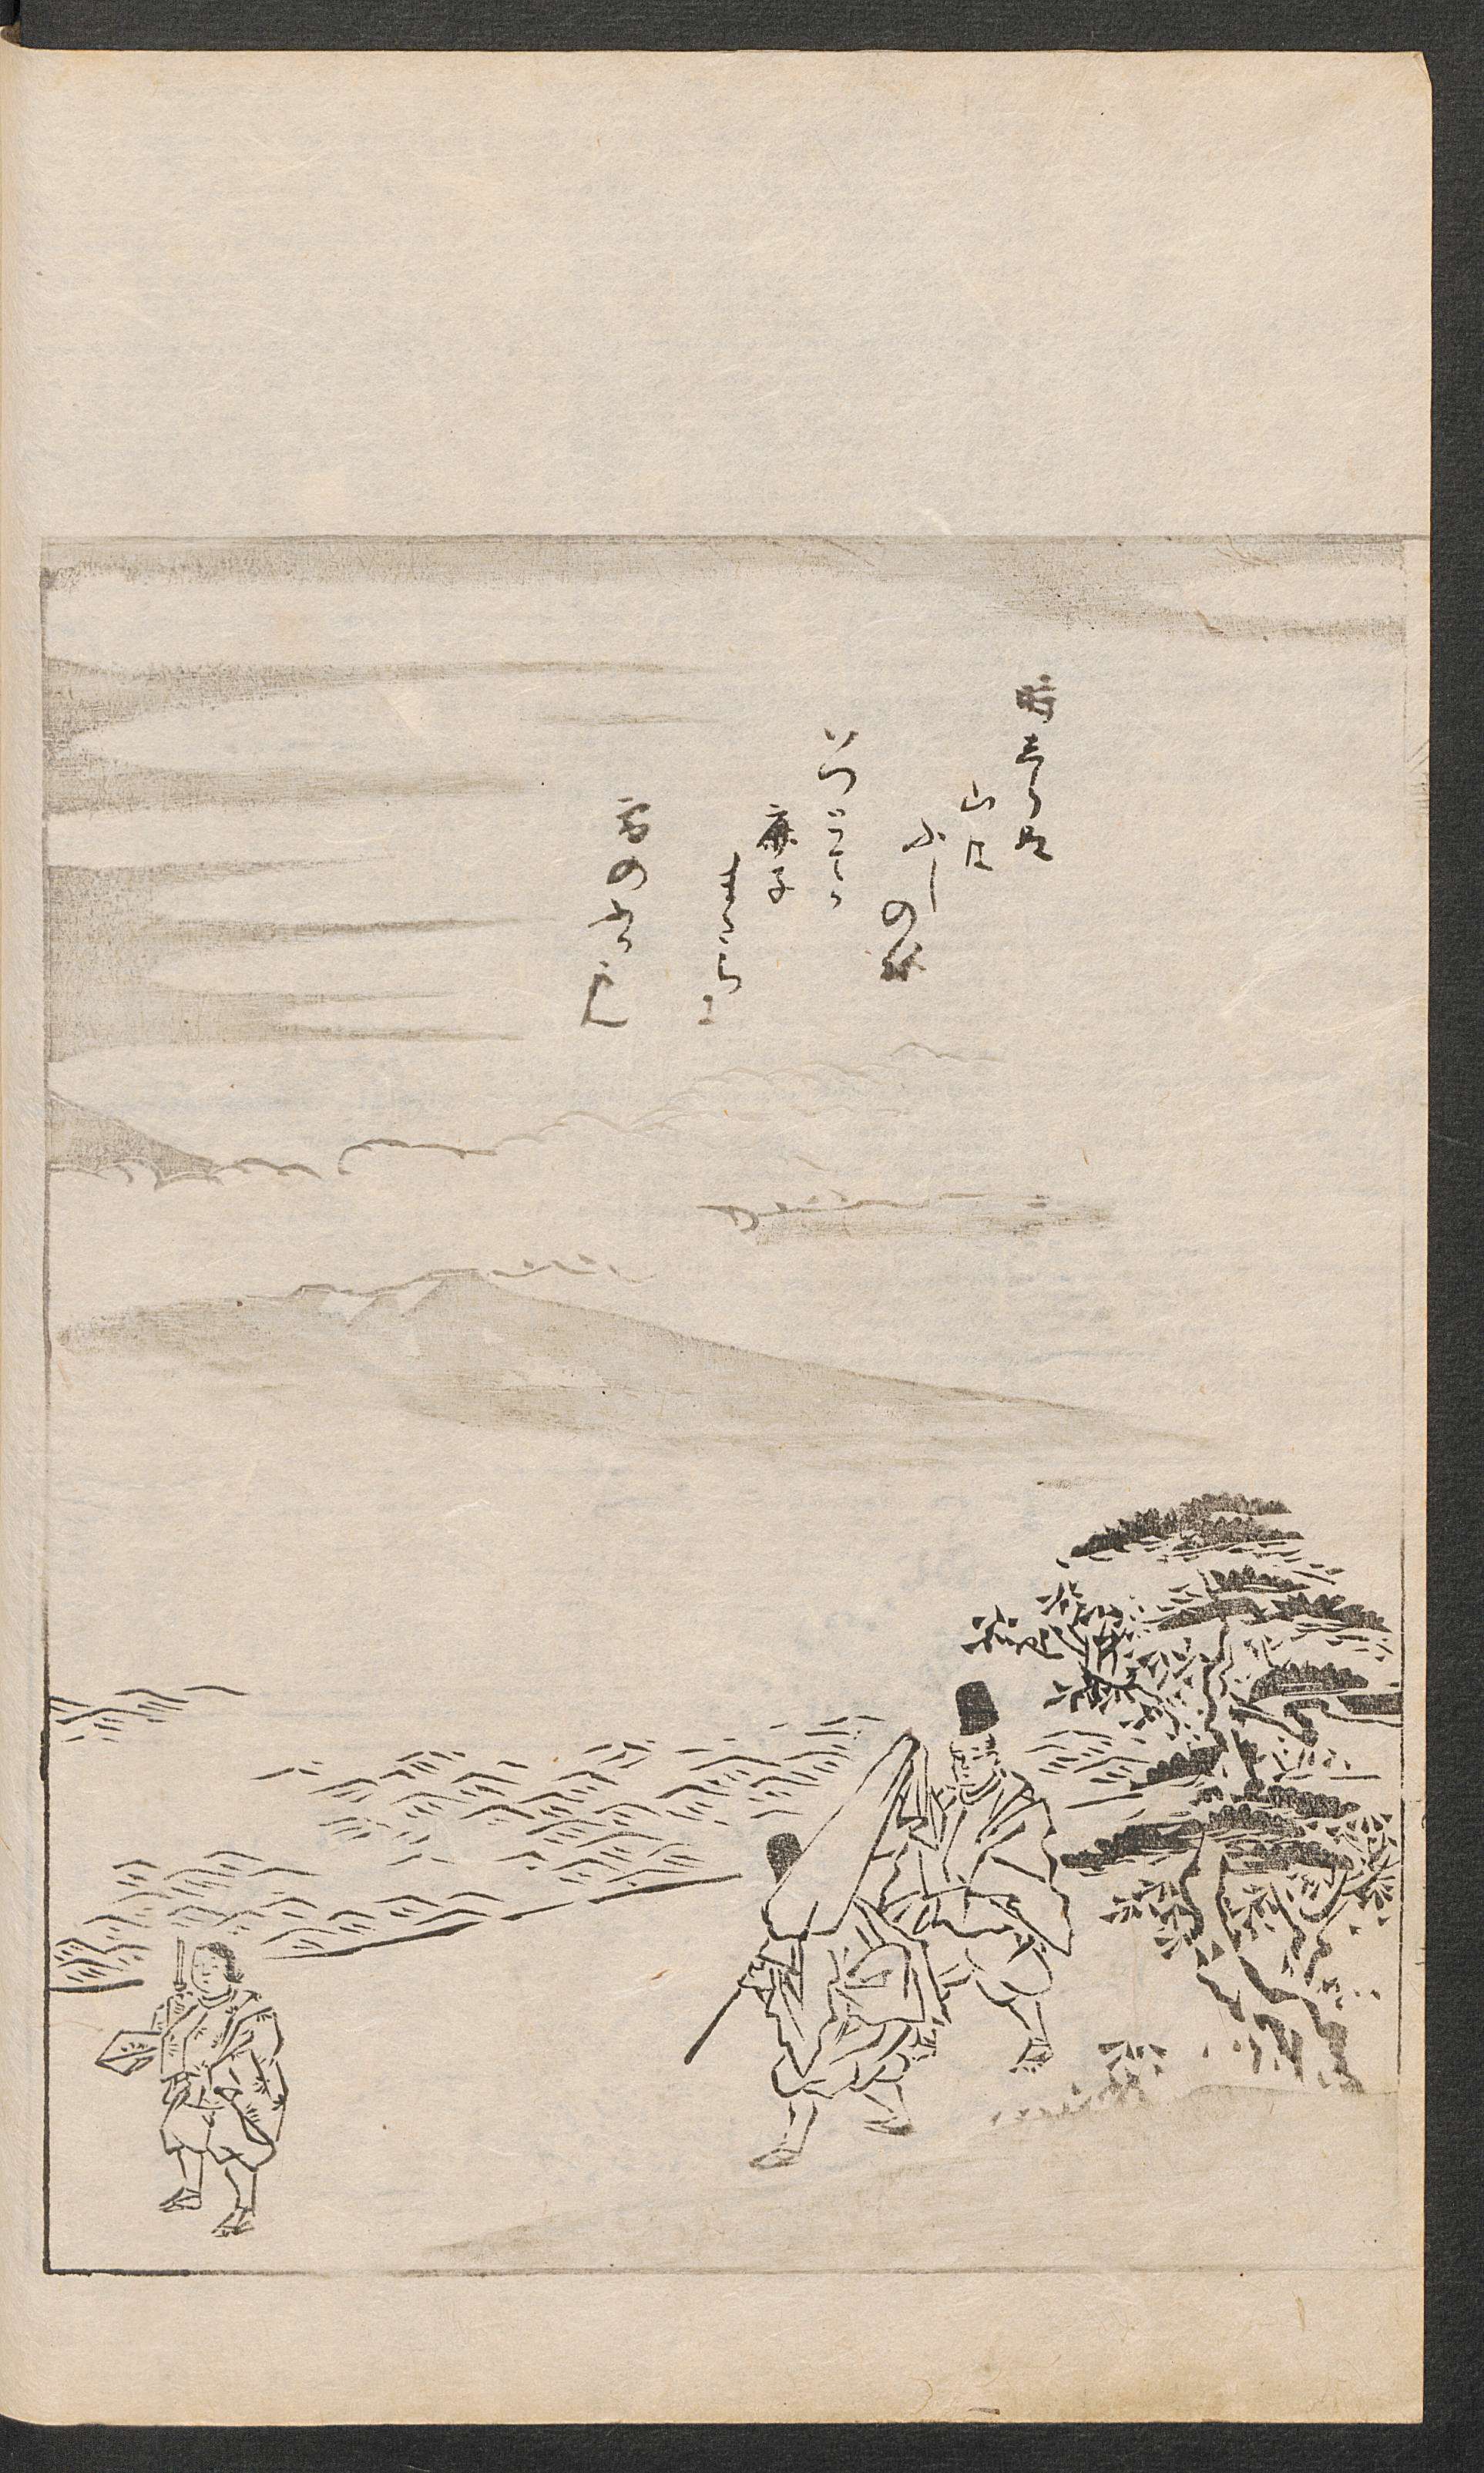 時しらぬ
山は
ふしの根
いつとてか
鹿子
またらに
雪のふるらん